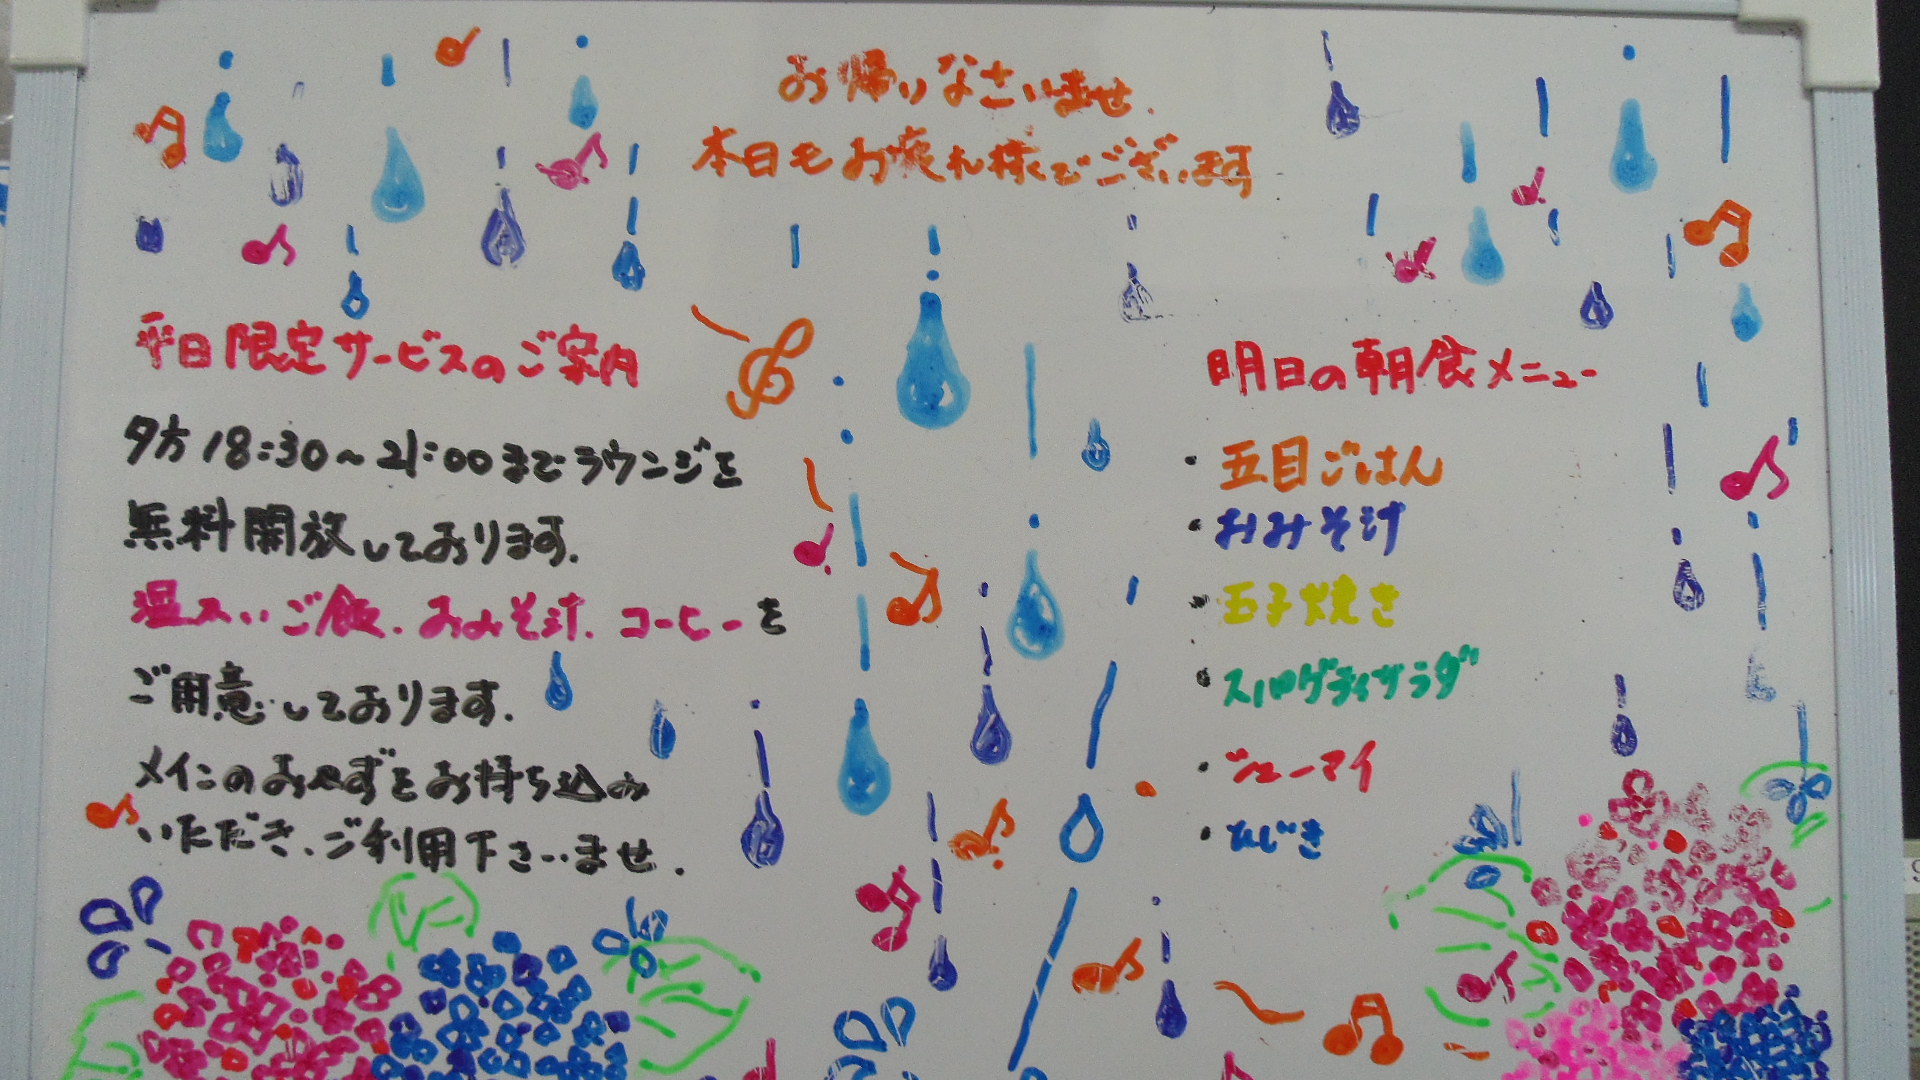 お帰りなさいませ.
本日もお疲れ様でございます
平日限定サービスのご案内
夕方18:30〜21:00までラウンジを
無料開放しております.
温かいご飯.おみそ汁.コーヒーを
ご用意しております.
メインのおかずをお持ち込み
いただき、ご利用下さいませ.
明日の朝食メニュー
・五目ごはん
・おみそ汁
・玉子焼き
・スパゲティサラダ
・シューマイ
・ひじき